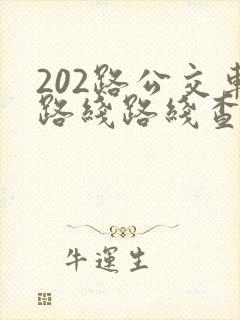 202路公交車
路綫路綫查
牛運生